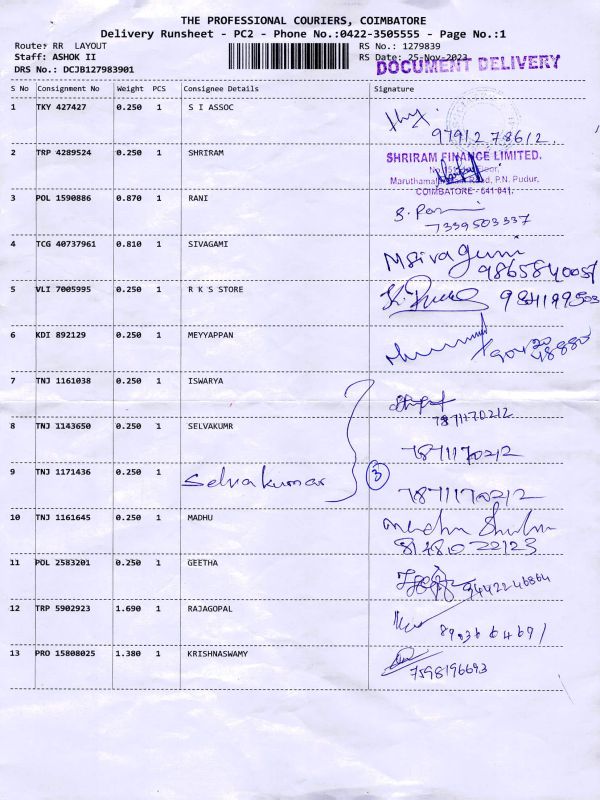 THE PROFESSIONAL COURIERS, COIMBATORE
Delivery Runsheet - PC2 - Phone No.:0422-3505555 - Page No.:1
Route: RR LAYOUT
RS No.: 1279839
Staff: ASHOK II
RS Date: 25-Nov-2023
DRS No.: DCJB127983901
DOCUMENT DELIVERY
S No Consignment No Weight PCS Consignee Details Signature
1 TKY 427427 0.250 1 S I ASSOC
97912 78612
2 TRP 4289524 0.250 1 SHRIRAM
SHRIRAM FINANCE LIMITED.
Road, P.N. Pudur,
COIMBATORE - 641 041.
3 POL 1590886 0.870 1 RANI
S. Rani
7339503337
4 TCG 40737961 0.810 1 SIVAGAMI
M Sivagami
5 VLI 7005995 0.250 1 R K S STORE
6 KDI 892129 0.250 1 MEYYAPPAN
7 TNJ 1161038 0.250 1 ISWARYA
7871170212
8 TNJ 1143650 0.250 1 SELVAKUMR
7871170212
9 TNJ 1171436 0.250 1 Selvakumar 3
7871170212
10 TNJ 1161645 0.250 1 MADHU
8148022123
11 POL 2583201 0.250 1 GEETHA
9442246864
12 TRP 5902923 1.690 1 RAJAGOPAL
13 PRO 15808025 1.380 1 KRISHNASWAMY
7598196693